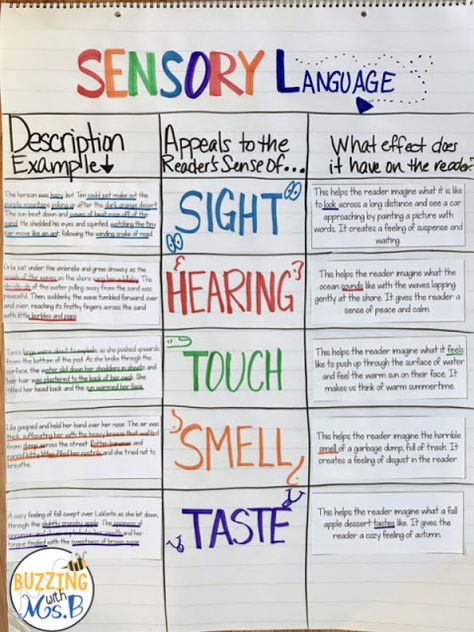 SENSORY LANGUAGE
Description
Example
Appeals to the
Reader's Sense of...
What effect does
it have on the reader?
The horizon was hazy, but Tim could just make out the
purple mountains poking up after the dark orange desert.
The sun beat down and waves of heat rose off of the
sand. He shielded his eyes and squinted, watching the tiny
car move like an ant, following the winding snake of road.
SIGHT
This helps the reader imagine what it is like
to look across a long distance and see a car
approaching by painting a picture with
words. It creates a feeling of suspense and
waiting.
Orla sat under the umbrella and grew drowsy as the
of the waves on the shore
of the water pulling away from the sand was
peaceful. Then, suddenly, the wave tumbled forward over
and over, reaching its frothy fingers across the sand
with little burbles and pops.
HEARING
This helps the reader imagine what the
ocean sounds like with the waves lapping
gently at the shore. It gives the reader a
sense of peace and calm.
legs were about to explode, so she pushed upwards
from the bottom of the pool. As she broke through the
surface, the water slid down her shoulders in sheets and
her hair was plastered to the back of her neck. She
tilted her head back and the sun warmed her face.
TOUCH
This helps the reader imagine what it feels
like to push up through the surface of water
and feel the warm sun on their face. It
makes us think of warm summertime.
Lila gasped and held her hand over her nose. The air was
thick, suffocating her with the heavy breeze that wafted
from across the street. Rotten bananas and
filled her nostrils and she tried not to
breathe.
SMELL
This helps the reader imagine the horrible
smell of a garbage dump, full of trash. It
creates a feeling of disgust in the reader.
A cozy feeling of fall swept over LaVonte as she bit down,
through the slightly crunchy apple. The
cinnamon and her mouth and her
tongue tingled with the sweetness of brown sugar.
TASTE
This helps the reader imagine what a fall
apple dessert tastes like. It gives the reader
a cozy feeling of autumn.
BUZZING
with
Ms. B